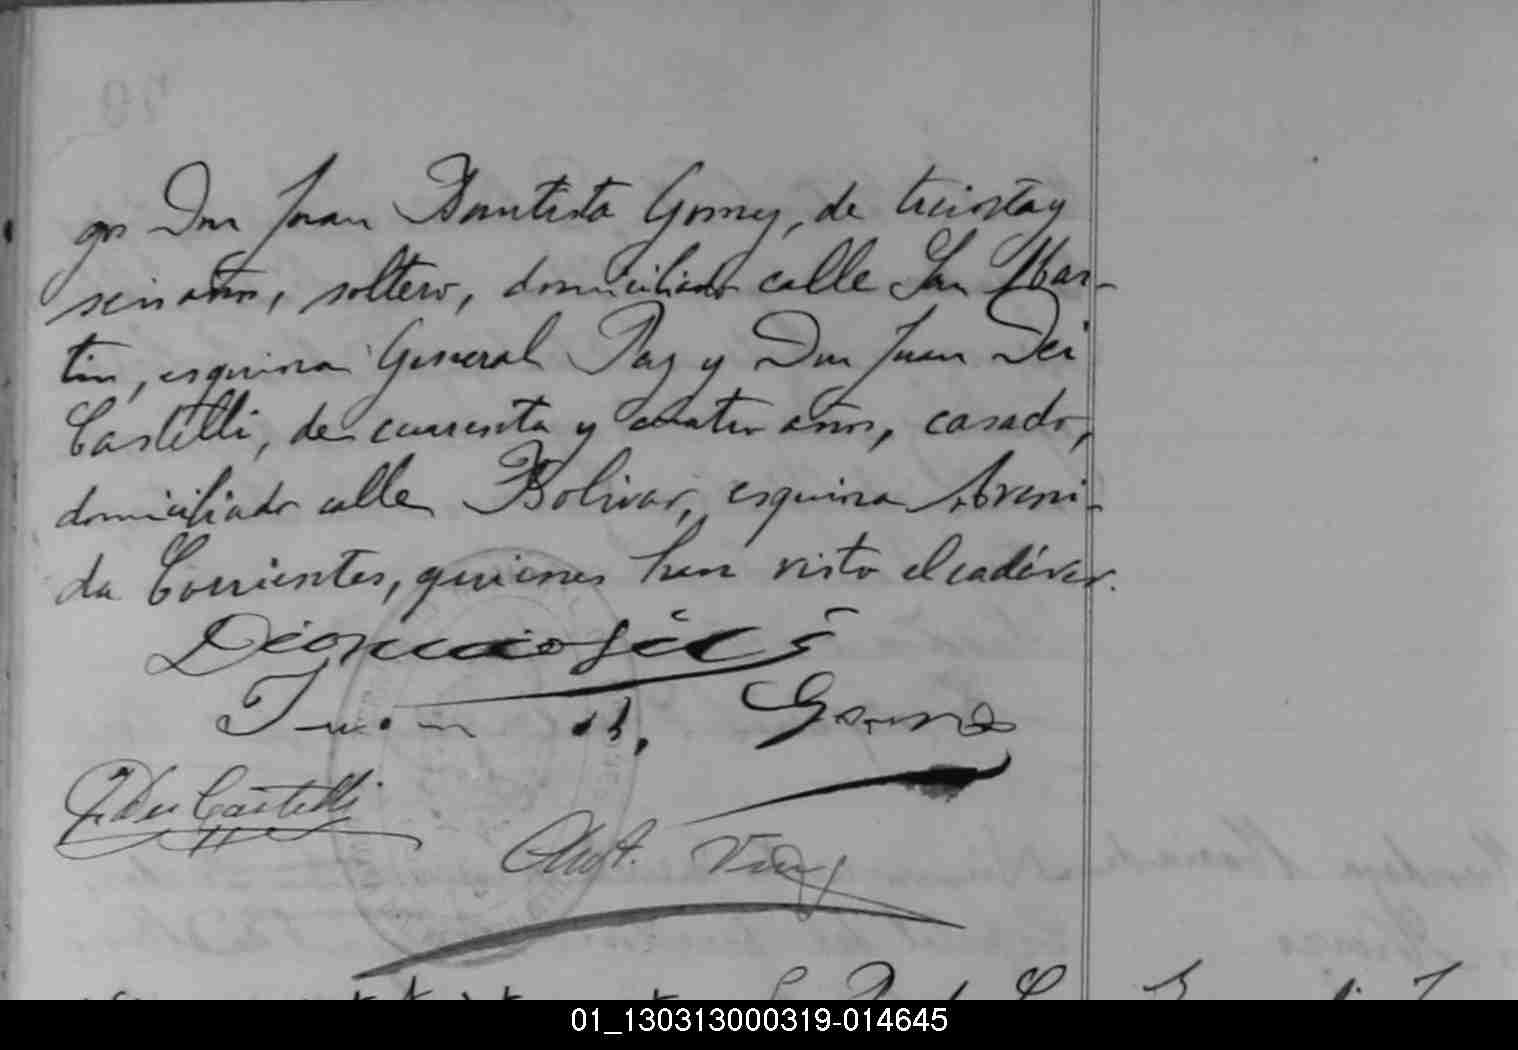 gos Don Juan Bautista Gomez, de treinta y
seis años, soltero, domiciliado calle San Mar-
tin, esquina General Paz y Don Juan Dei
Castelli, de cuarenta y cuatro años, casado,
domiciliado calle Bolivar, esquina Aveni-
da Corrientes, quienes han visto el cadáver.
Juan B. Gomez
J. Dei Castelli
01_130313000319-014645